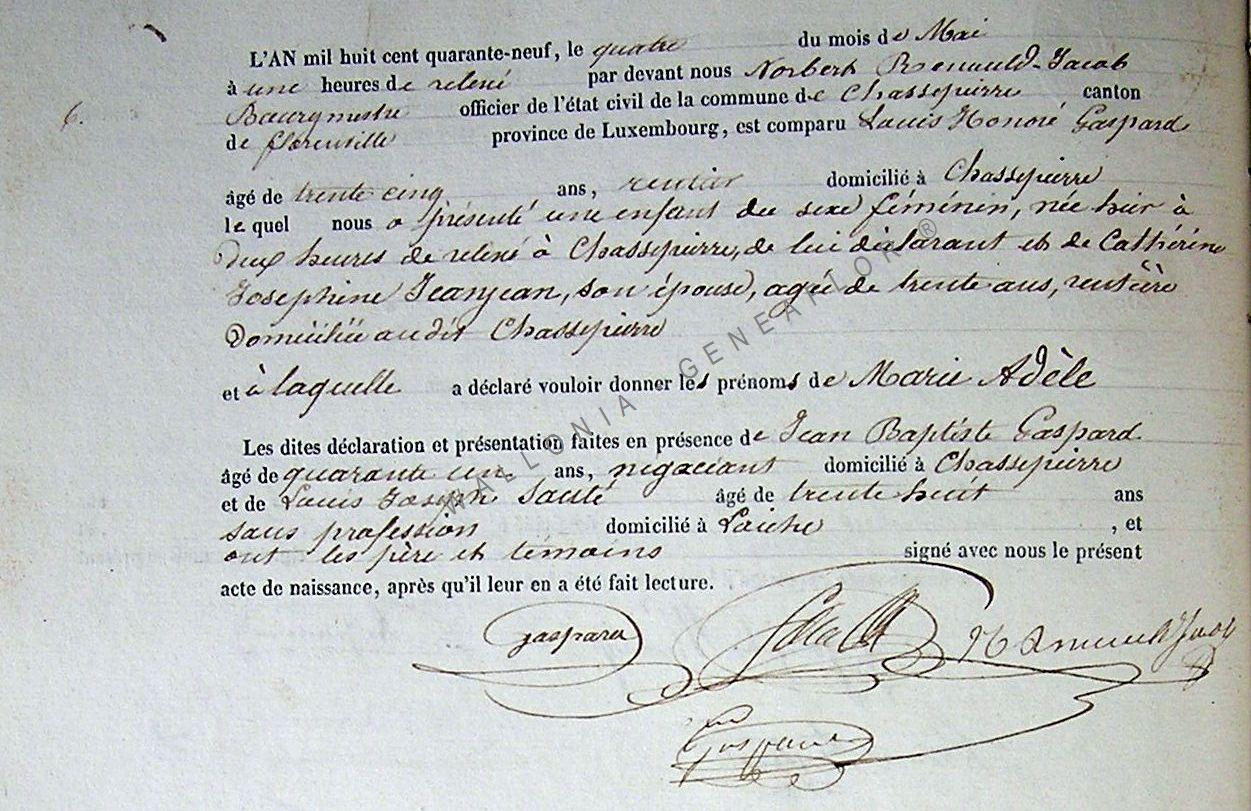 L'AN mil huit cent quarante-neuf, le quatre du mois de Mai
à une heures de relevé par devant nous Norbert Renauld-Jacob
6. Bourgmestre officier de l'état civil de la commune de Chassepierre canton
de florenville province de Luxembourg, est comparu Louis Honoré Gaspard
âgé de trente cinq ans, rentier domicilié à Chassepierre
le quel nous a présenté une enfant du sexe féminin, née hier à
deux heures de relevé à Chassepierre, de lui déclarant et de Cathérine
Josephine Jeanjean, son épouse, agée de trente ans, rentière
Domiciliée audit Chassepierre
et à laquelle a déclaré vouloir donner les prénoms de Marie Adèle
Les dites déclaration et présentation faites en présence de Jean Baptiste Gaspard
âgé de quarante un ans, négociant domicilié à Chassepierre
et de Louis Joseph âgé de trente huit ans
sans profession domicilié à Laiche, et
ont les père et témoins signé avec nous le présent
acte de naissance, après qu'il leur en a été fait lecture.
Gaspard
Gaspard
WALLONIA GENEAFLOR ®